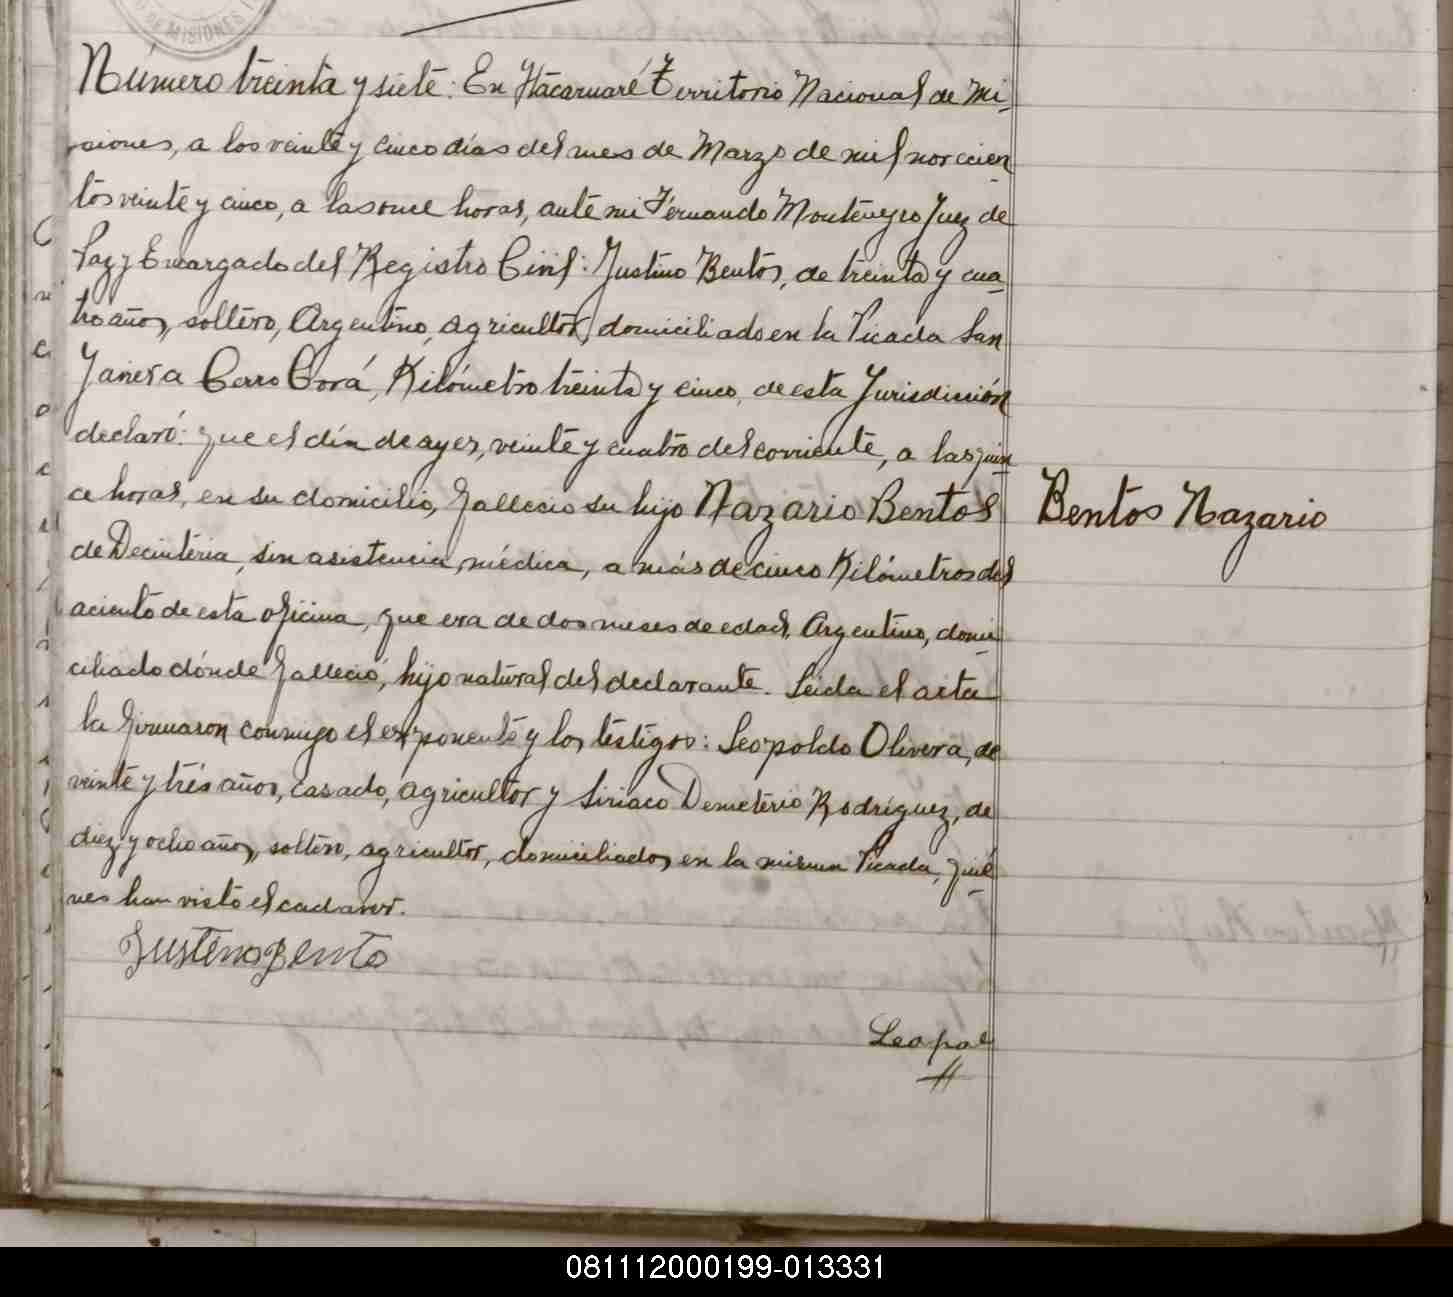 DE MISIONES
Número treinta y siete: En Itacaruaré Territorio Nacional de Mi-
siones, a los veinte y cinco días del mes de Marzo de mil novecien
tos veinte y cinco, a las once horas, ante mi Fernando Montenegro Juez de
Paz y Encargado del Registro Civil: Justino Bentos, de treinta y cua-
tro años, soltero, Argentino, agricultor, domiciliado en la Picada San
Javier a Cerro Corá, Kilómetro treinta y cinco, de esta Jurisdicción
declaró: que el día de ayer, veinte y cuatro del corriente, a las quin-
ce horas, en su domicilio, fallecio su hijo Nazario Bentos
Bentos Nazario
de Decinteria, sin asistencia médica, a más de cinco Kilómetros del
aciento de esta oficina, que era de dos meses de edad, Argentino, domi-
ciliado dónde falleció, hijo natural del declarante. Leida el acta
la firmaron conmigo el exponente y los testigos: Leopoldo Olivera, de
veinte y trés años, casado, agricultor y Siriaco Demetério Rodriguez, de
diez y ocho años, soltero, agricultor, domiciliados en la misma Picada, quié-
nes han visto el cadaver.
Justino Bento
Leopol